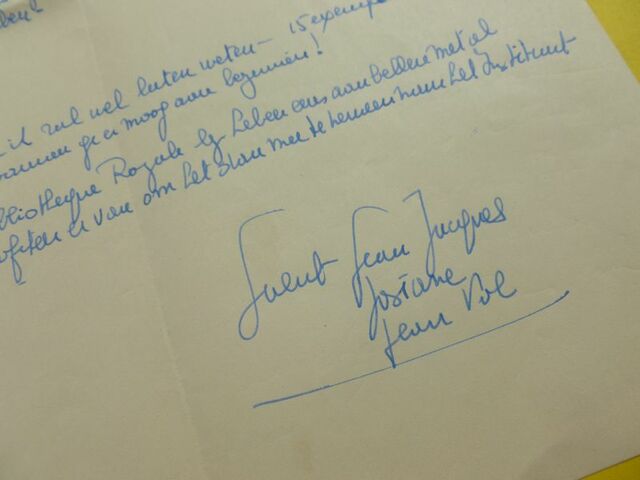 ik zal wel laten weten - 15 exemp
wanneer ge er moog aan beginnen!
bliotheque Royale leg Leben eens aan bellen met al
er van om het blau mee te nemen naar het Instituut
Groent Jean Jacques
Josiane
Jean Pol